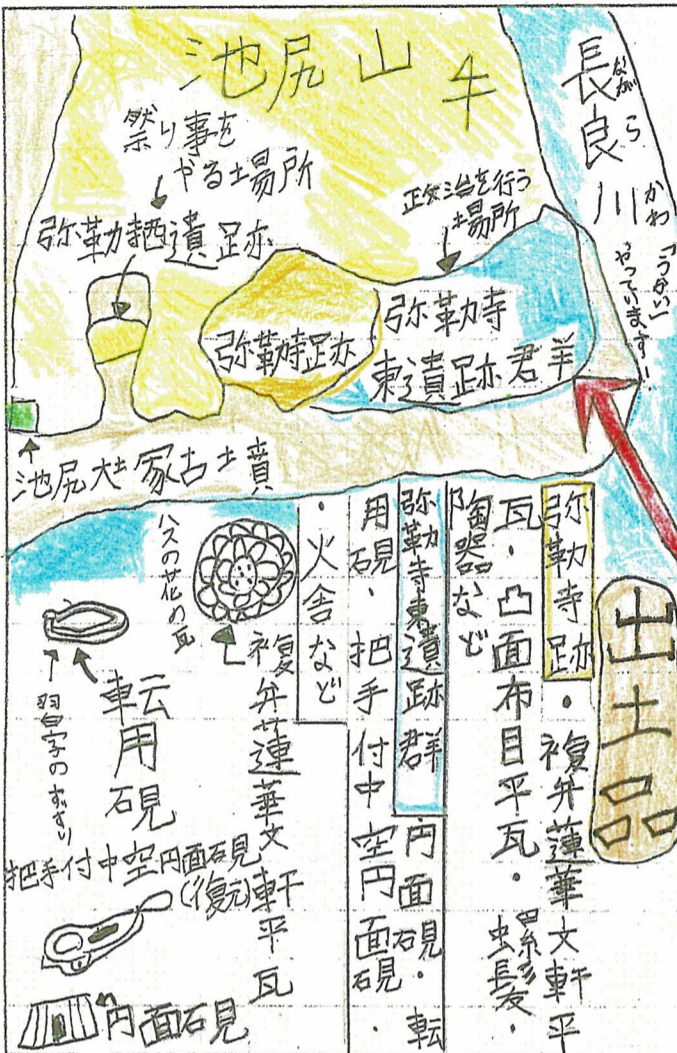 池尻山
長良川
ながら
かわ
「うかい」
やっています!
祭り事を
やる場所
弥勒勒西遺跡
政治を行う
場所
弥勒寺跡
弥勒寺
東遺跡群
池尻大塚古墳
出土品
弥勒寺跡・複弁蓮華文軒平
瓦・凸面布目平瓦・螺髪・
陶器など
弥勒寺東遺跡群 円面硯・転
用硯・把手付中空円面硯・
火舎など
ハスの花の瓦
複弁蓮華文軒平瓦
転用硯
習字のすずり
把手付中空円面硯
(復元)
円面硯